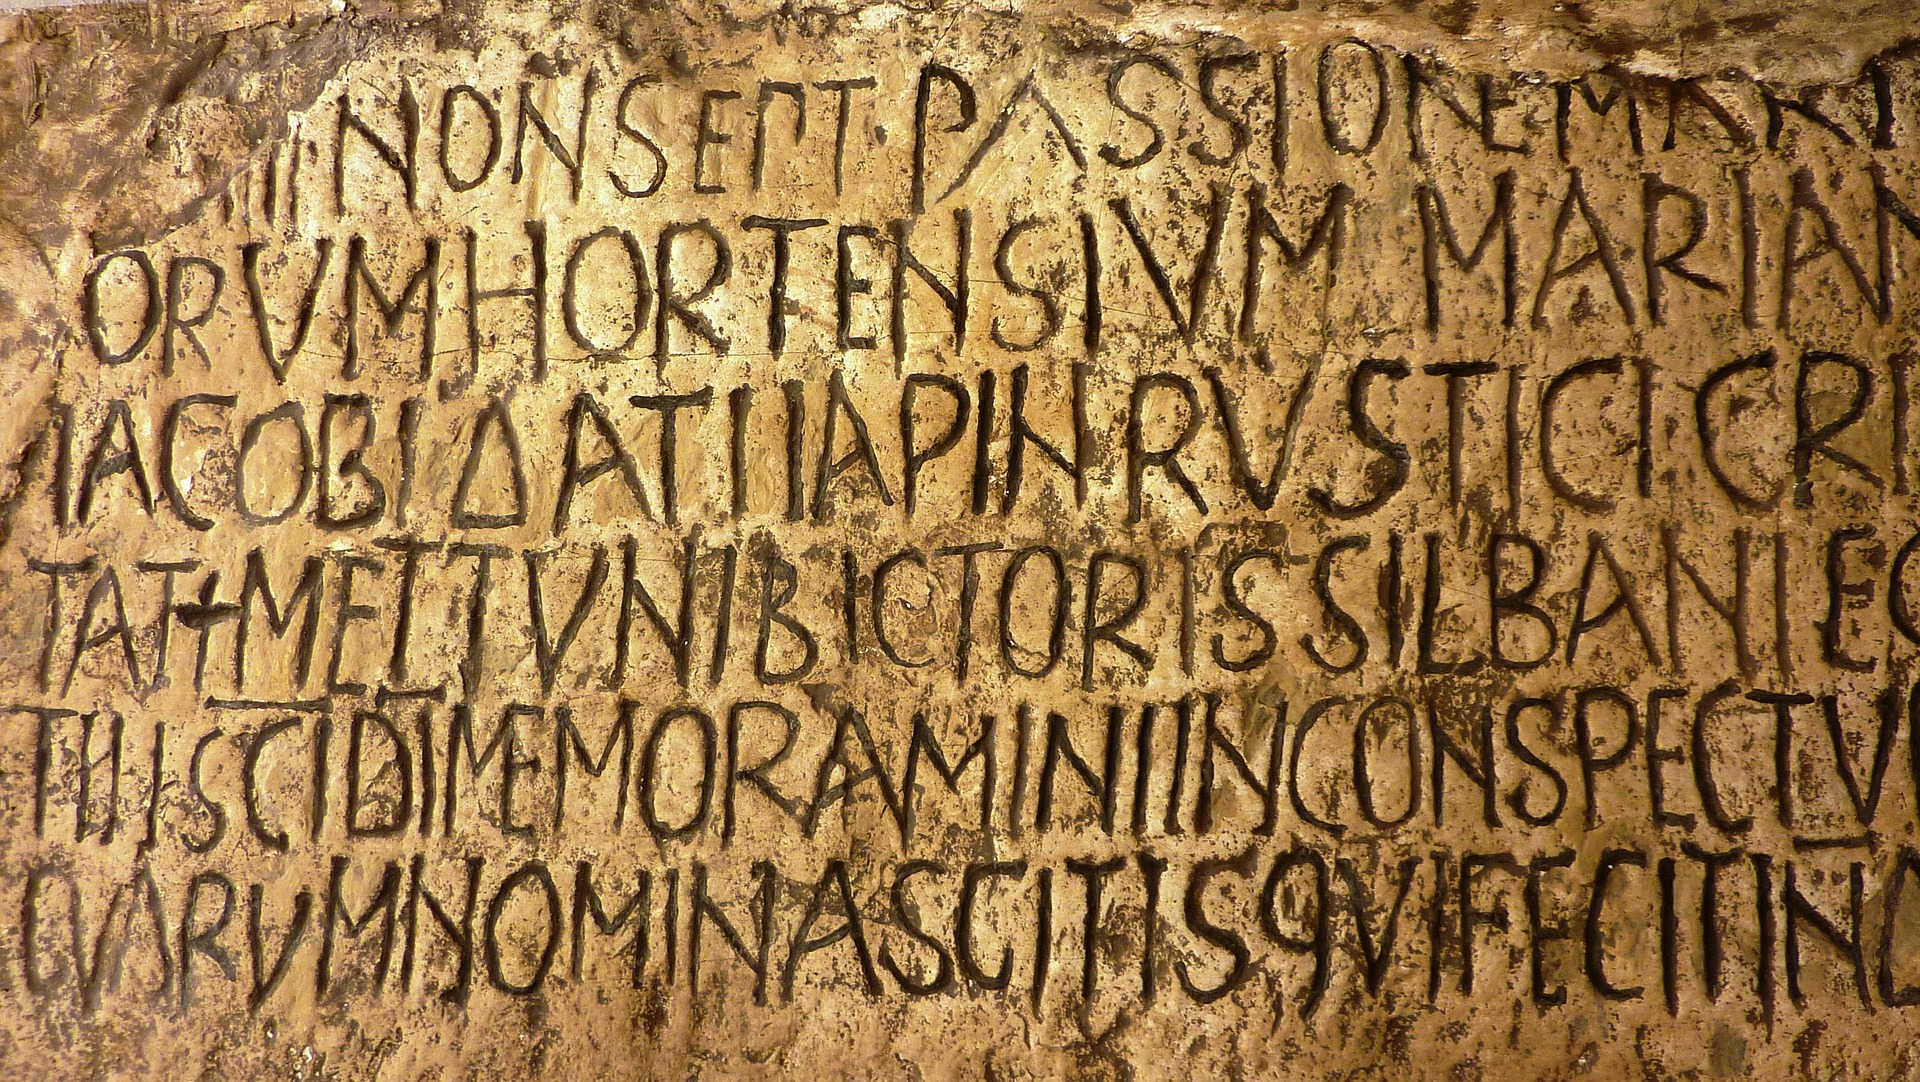 III NON SEPT · PASSIONE MAR
ORVM HORTENSIVM MARIAN
IACOBI ΔATI IAPIN RVSTICI CRI
TAT+ METTVNI BICTORIS SILBANI EG
TII SCI DI MEMORAMINI IN CONSPECTV
QVARVM NOMINA SCIT IS QVI FECIT IND